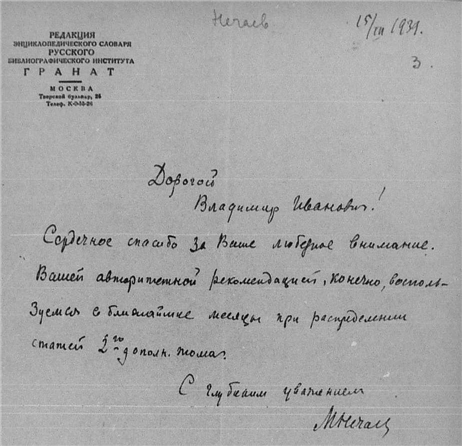 Нечаев
15/VII 1931.
3.
РЕДАКЦИЯ
ЭНЦИКЛОПЕДИЧЕСКОГО СЛОВАРЯ
РУССКОГО
БИБЛИОГРАФИЧЕСКОГО ИНСТИТУТА
ГРАНАТ
МОСКВА
Тверской бульвар, 25
Телеф.
Дорогой
Владимир Иванович!
Сердечное спасибо за Ваше любезное внимание.
Вашей авторитетной рекомендацией, конечно, восполь-
зуемся в ближайшие месяцы при распределении
статей 2го дополн. тома.
С глубоким уважением
МНечаев